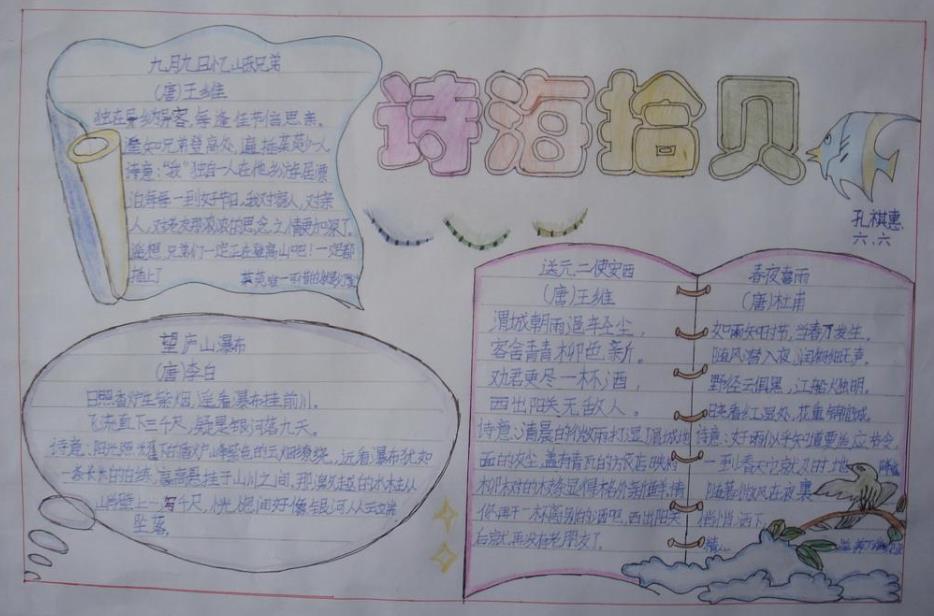 诗海拾贝
孔祺惠
六.六
九月九日忆山东兄弟
(唐)王维
独在异乡为异客,每逢佳节倍思亲。
遥知兄弟登高处,遍插茱萸少一人
诗意:"我"独自一人在他乡
泊每每一到好节日,我对家人,对亲
人,对老友那浓浓的思念之情更加深了
遥想兄弟们一定正在登高山吧!一定都
插上了
望庐山瀑布
(唐)李白
日照香炉生紫烟,遥看瀑布挂前川。
飞流直下三千尺,疑是银河落九天。
诗意:阳光照耀下的香炉峰紫色的云烟缭绕,远看瀑布犹如
一条长长的白练,高高悬挂于山川之间,那
山崖壁上三千尺,恍惚间好像银河从云端
坠落。
送元二使安西
(唐)王维
渭城朝雨浥轻尘,
客舍青青柳色新。
劝君更尽一杯酒,
西出阳关无故人。
诗意:清晨的微雨打湿了渭城地
面的灰尘,盖有青瓦的旅店映衬
柳树的枝条显得格外新鲜,请
你再干一杯离别的酒吧,西出阳关
后就再没有老朋友了。
春夜喜雨
(唐)杜甫
好雨知时节,当春乃发生。
随风潜入夜,润物细无声。
野径云俱黑,江船火独明。
晓看红湿处,花重锦官城。
诗意:好雨似乎知道要适应节令,
一到春天它就又
随着微风在夜里
悄悄洒下,